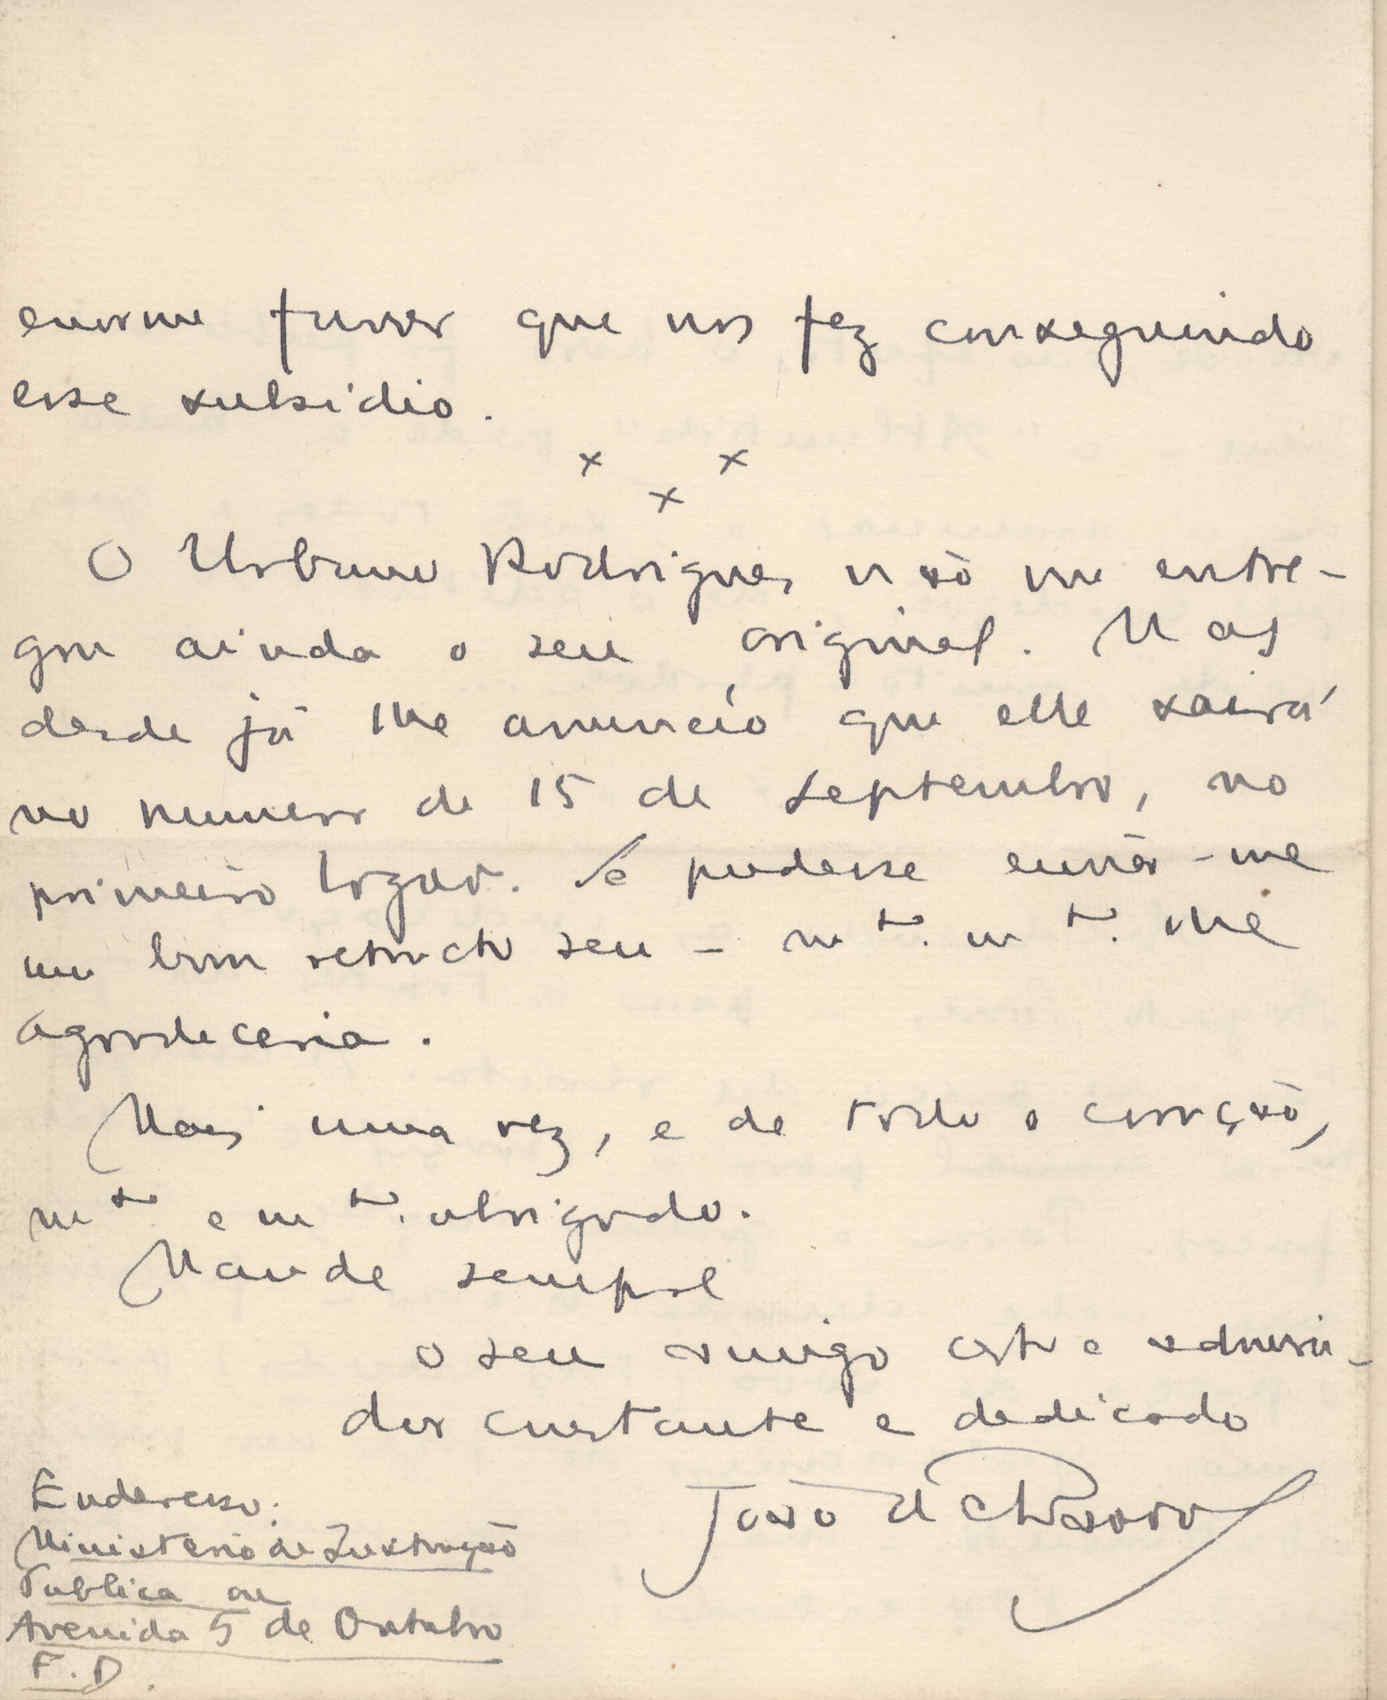 enorme favor que nos fez conseguindo
esse subsidio.
x x
x
O Urbano Rodrigues não me entre-
gou ainda o seu original. Mas
desde já lhe anuncio que elle sairá
no numero de 15 de Septembro, no
primeiro logar. Se pudesse enviar-me
um bom retracto seu – mto. mto. lhe
agradeceria.
Mais uma vez, e de todo o coração,
mto e mto. obrigado.
Mande sempre
o seu amigo certo e admira-
dor constante e dedicado
João de Barros
Endereço:
Ministerio de Instrução
Publica ou
Avenida 5 de Outubro
F. D.